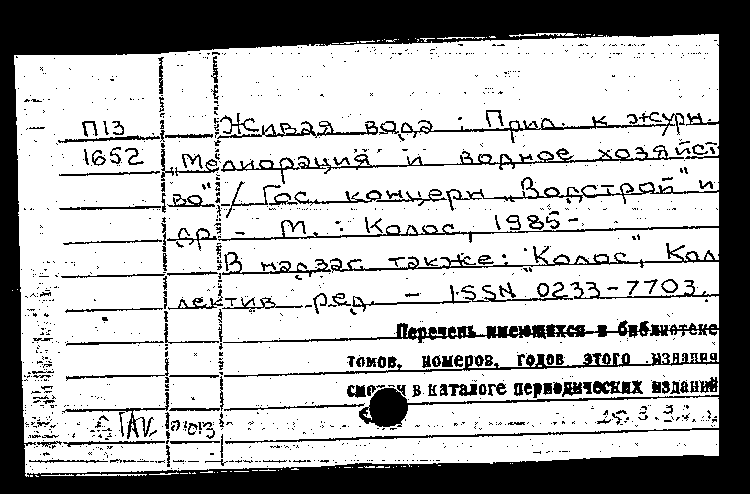 П13 Живая вода : Прил. к журн.
1652 „Мелиорация и водное хозяйст
во" / Гос. концерн „Водстрой" и
др. - М. : Колос, 1985-.
В надзаг. также: "Колос", Кол
лектив ред. - ISSN 0233-7703.
Перечень имеющихся в библиотеке
томов, номеров, годов этого издания
смотри в каталоге периодических изданий
ГАК